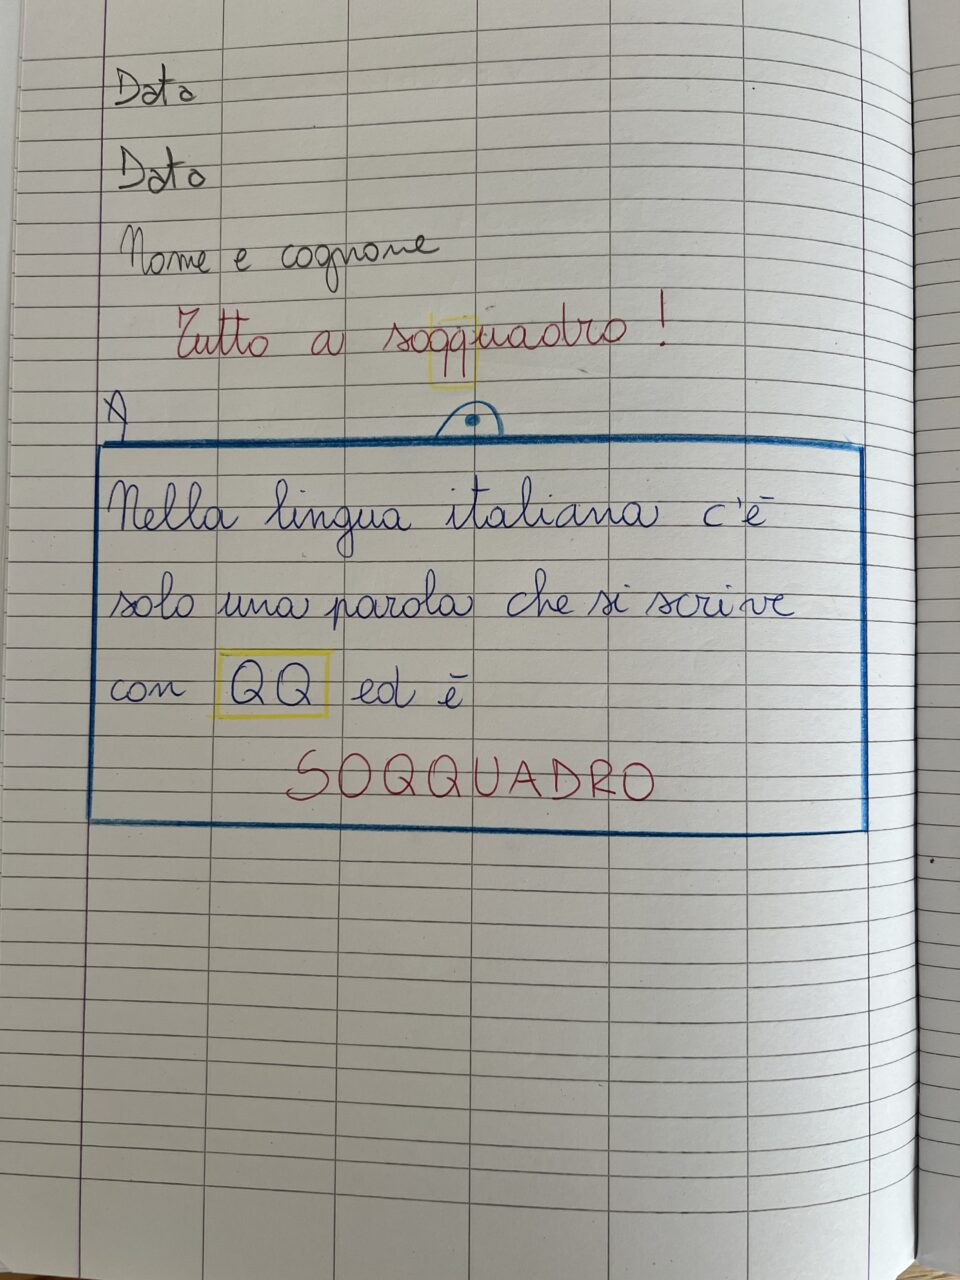 Data
Data
Nome e cognome
Tutto a soqquadro!
Nella lingua italiana c'è
solo una parola che si scrive
con QQ ed è
SOQQUADRO